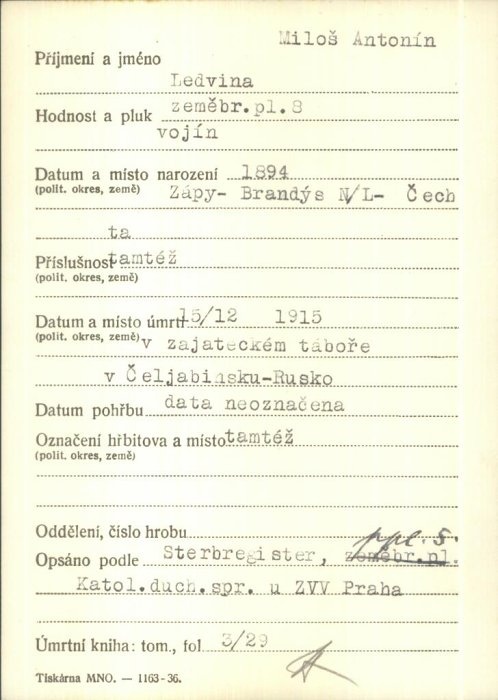 Miloš Antonín
Příjmení a jméno
Ledvina
Hodnost a pluk zeměbr.pl.8
vojín
Datum a místo narození 1894
(polit. okres, země) Zápy- Brandýs N/L- Čech
ta
Příslušnost tamtéž
(polit. okres, země)
Datum a místo úmrtí 15/12 1915
(polit. okres, země) v zajateckém táboře
v Čeljabinsku-Rusko
Datum pohřbu data neoznačena
Označení hřbitova a místo tamtéž
(polit. okres, země)
Oddělení, číslo hrobu
ppl. 5.
Opsáno podle Sterbregister, zeměbr.pl.
Katol.duch.spr. u ZVV Praha
Úmrtní kniha: tom., fol. 3/29
Tiskárna MNO. — 1163-36.